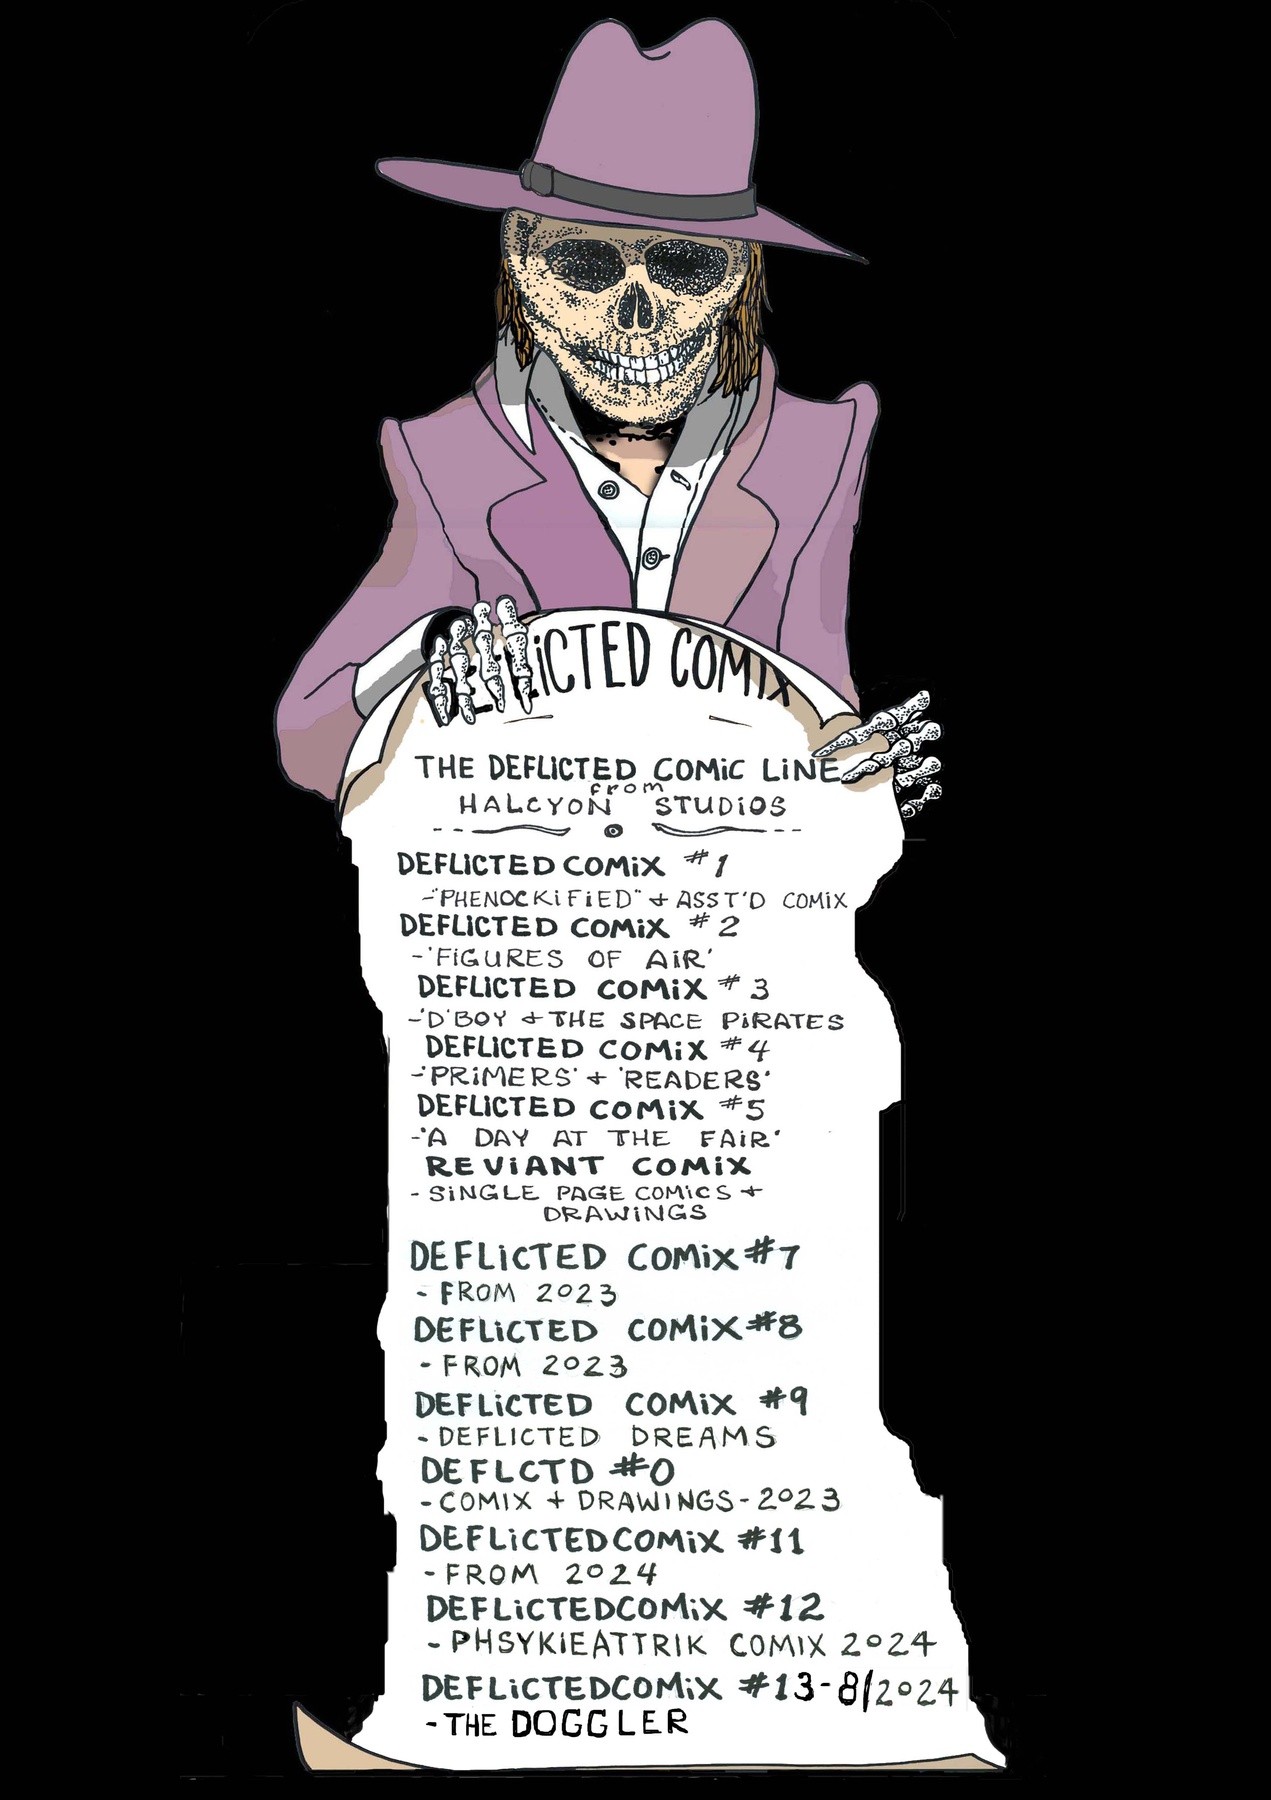 DEFLiCTED COMiX
THE DEFLICTED COMiC LiNE
from
HALCYON STUDiOS
DEFLICTED COMiX #1
-"PHENOCKiFiED" + ASST'D COMiX
DEFLICTED COMiX #2
-'FiGURES OF AiR'
DEFLICTED COMiX #3
-'D'BOY + THE SPACE PiRATES
DEFLICTED COMiX #4
-'PRiMERS' + 'READERS'
DEFLICTED COMiX #5
-'A DAY AT THE FAiR'
REViANT COMiX
- SiNGLE PAGE COMiCS +
DRAWiNGS
DEFLiCTED COMiX #7
- FROM 2023
DEFLiCTED COMiX #8
- FROM 2023
DEFLiCTED COMiX #9
- DEFLICTED DREAMS
DEFLCTD #0
- COMIX + DRAWINGS - 2023
DEFLiCTEDCOMiX #11
- FROM 2024
DEFLiCTEDCOMiX #12
- PHSYKiEATTRIK COMIX 2024
DEFLiCTEDCOMiX #13-8/2024
- THE DOGGLER